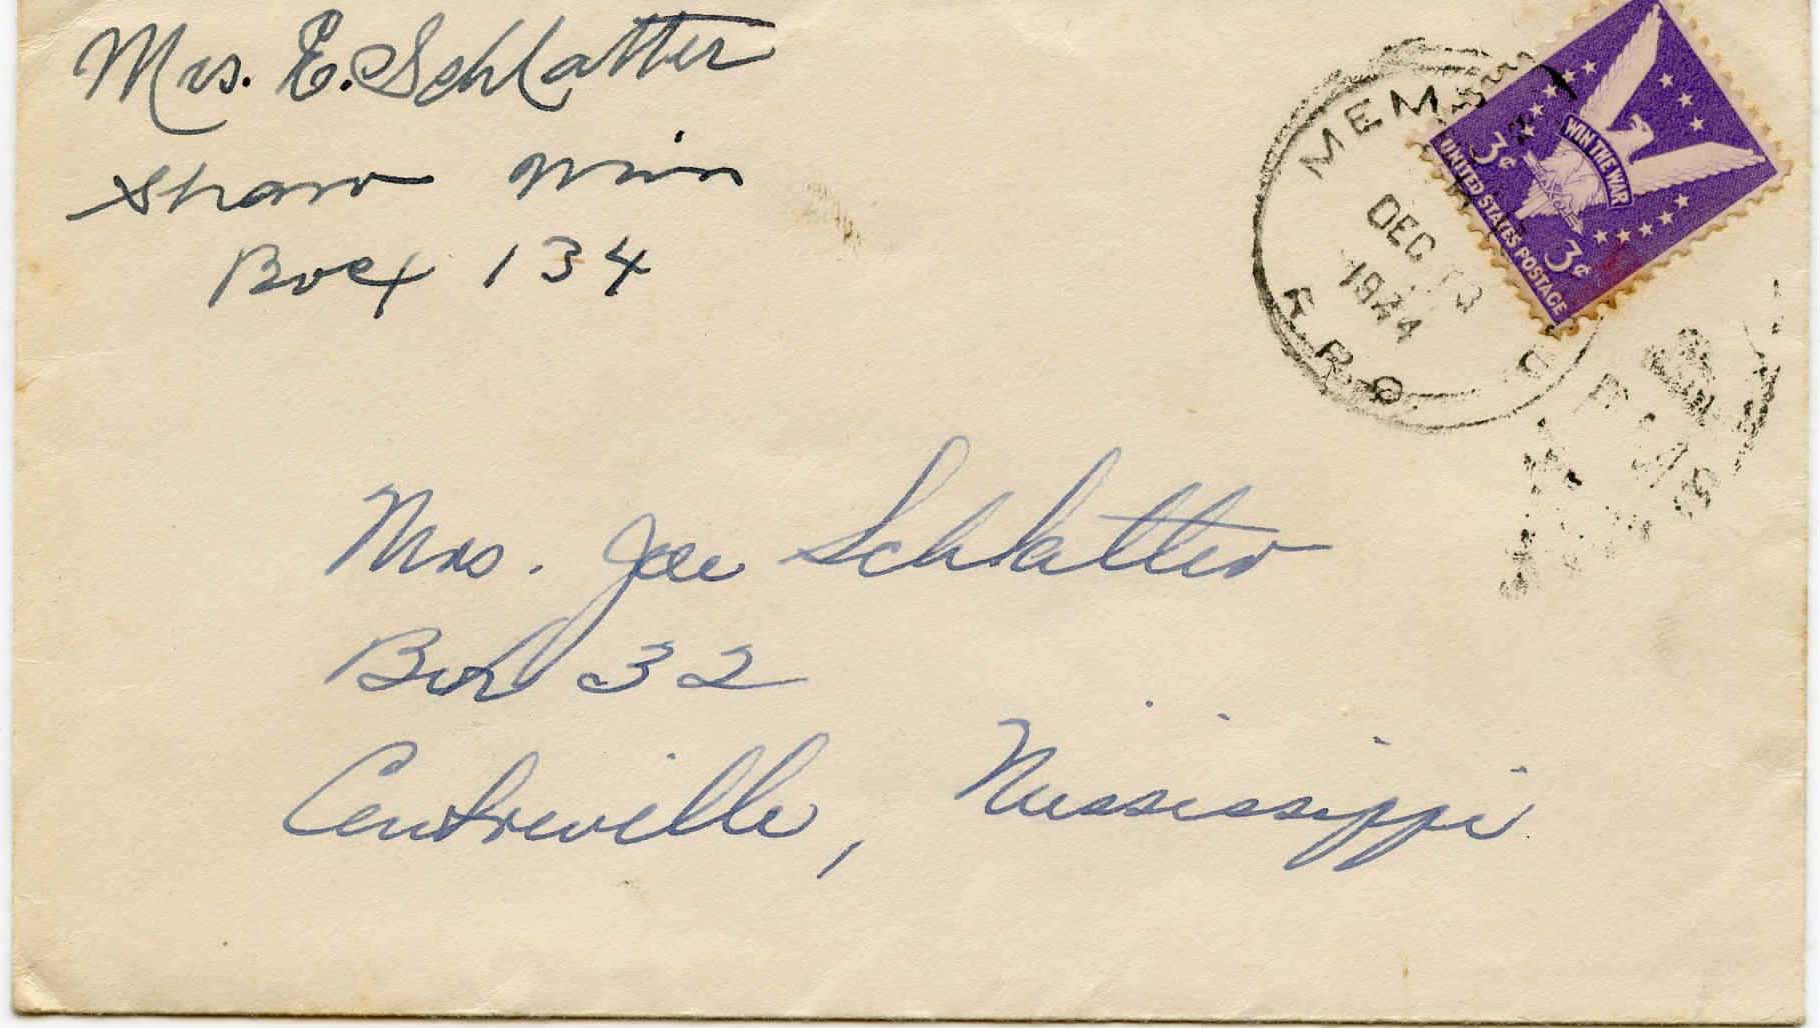 Mrs. E. Schlatter
Shaw Miss
Box 134
MEMP
DEC 13
1944
R.P.O.
WIN THE WAR
3¢ 3¢
UNITED STATES POSTAGE
Mrs. Joe Schlatter
Box 32
Centreville, Mississippi